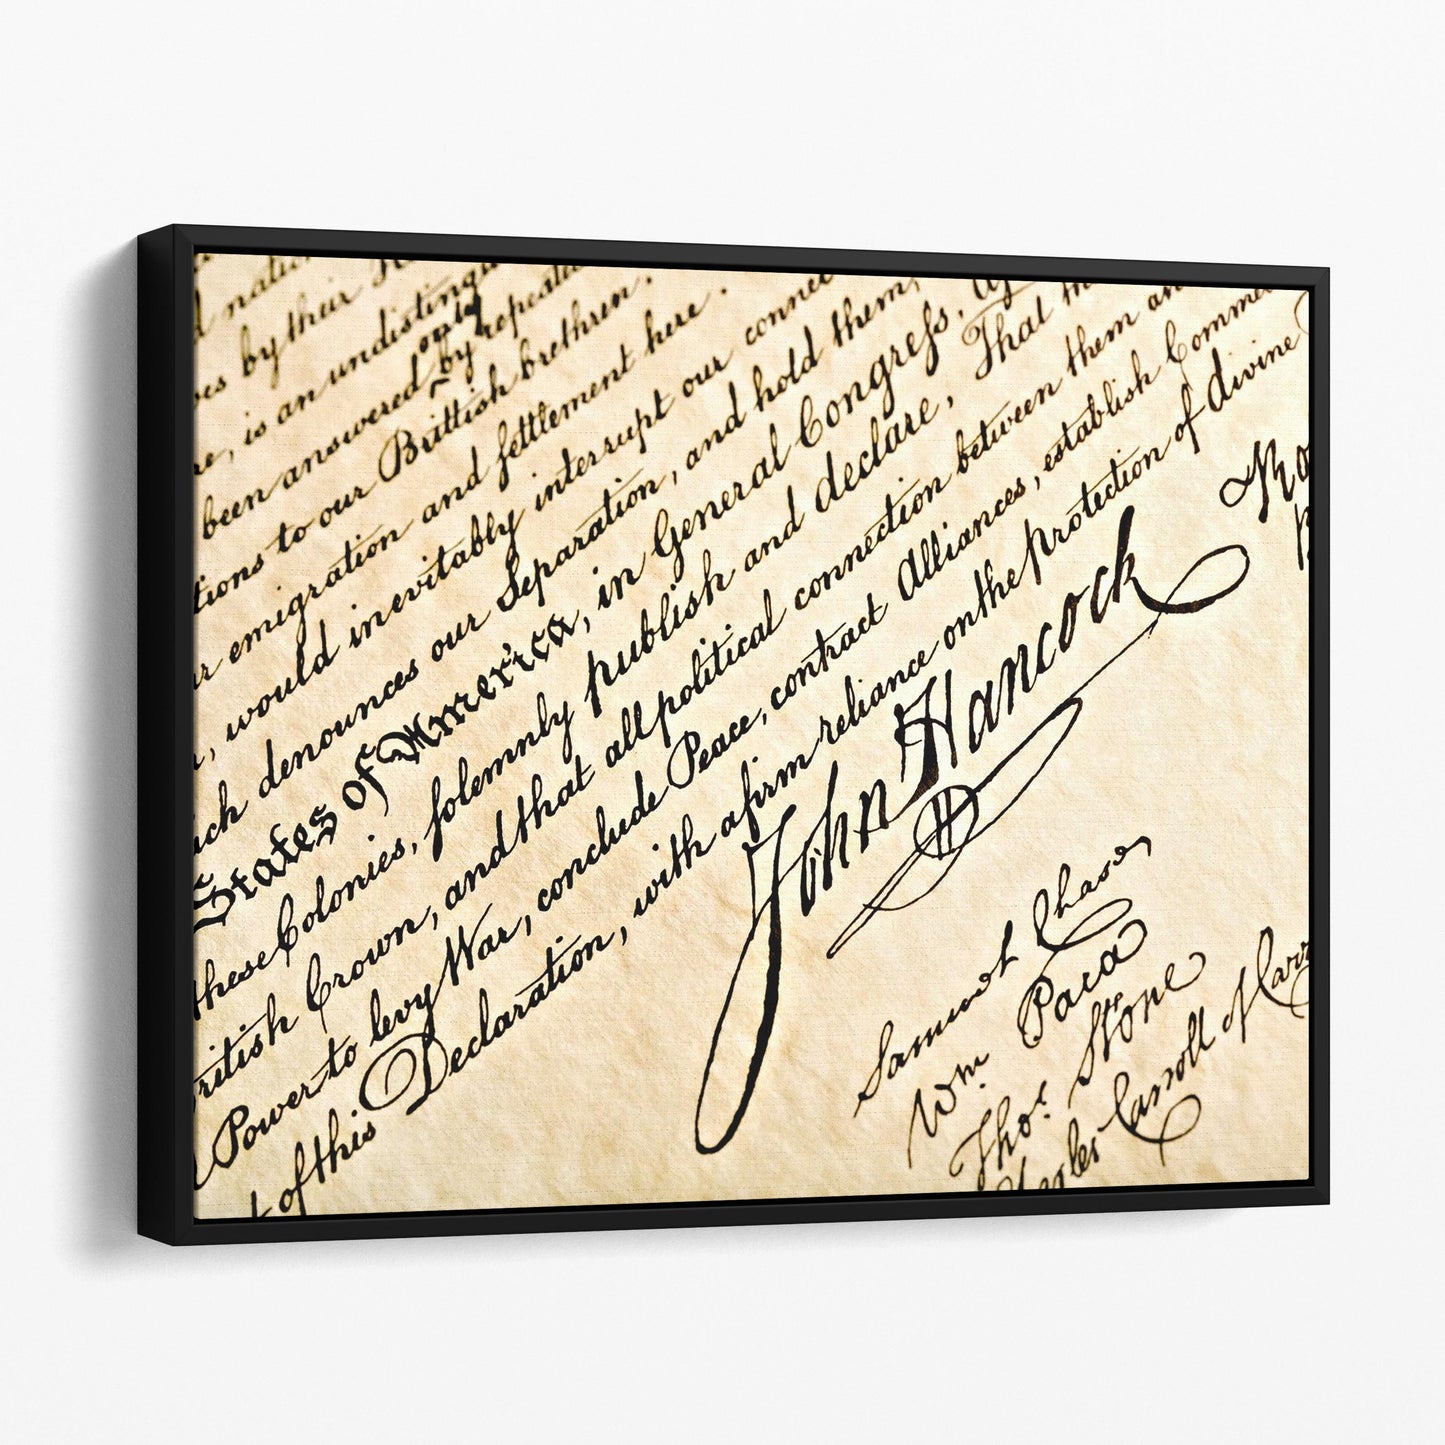 natio
es by their
re, is an undistingu
only
been answered by repeated
tions to our Brittish brethren.
r emigration and ſettlement here.
, would inevitably interrupt our connec
ich denounces our Separation, and hold them,
States of America, in General Congreſs, A
these Colonies, ſolemnly publish and declare, That th
ritish Crown, and that all political connection between them an
Power to levy War, conclude Peace, contract Alliances, establish Commer
t of this Declaration, with a firm reliance on the protection of divine
Ro
John Hancock
Samuel Chase
Wm. Paca
Thos. Stone
arles Carroll of Carr